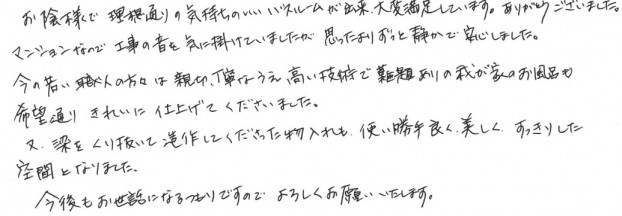 お陰様で 理想通りの気持ちのいいバスルームが出来、大変満足しています。ありがとうございました。
マンションなので 工事の音を気に掛けていましたが 思ったよりずっと静かで安心しました。
今の若い職人の方々は 親切、丁寧なうえ、高い技術で 難題ありの我が家のお風呂も
希望通り きれいに 仕上げてくださいました。
又、梁をくり抜いて 造作してくださった物入れも、使い勝手良く、美しく、すっきりした
空間となりました。
今後もお世話になるつもりですので よろしくお願いいたします。